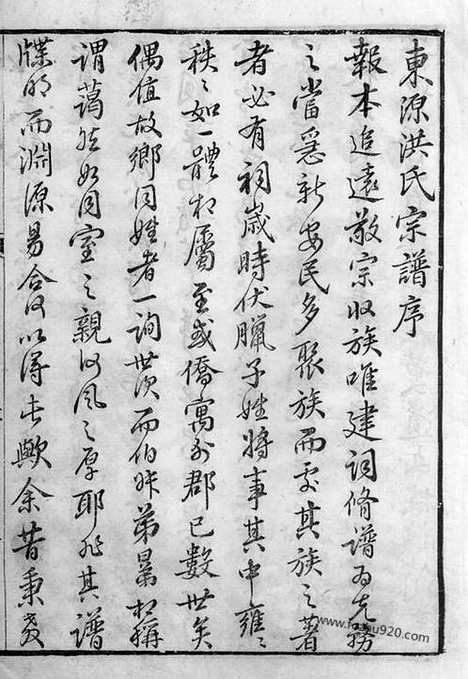 東源洪氏宗譜序
報本追遠敬宗收族唯建詞脩譜為先務
之當急新安民多聚族而處其族之著
者必有祠歲時伏臘子姓將事其中雍〻
秩〻如一體相屬至或僑寓他郡已數世矣
偶值故鄉同姓者一詢世次而伯叔弟昆相稱
謂藹然如同室之親何風之厚耶非其譜
牒明而淵源易合何以得此歟余昔秉
www.foshu920.com